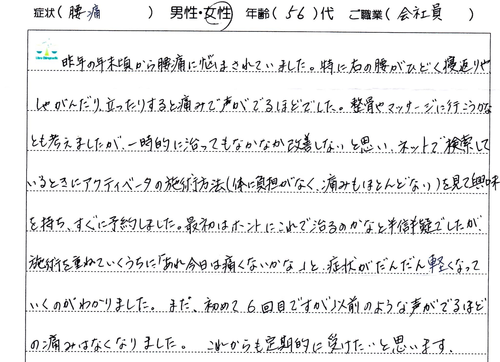 症状( 腰痛 ) 男性・女性 年齢( 56 )代 ご職業( 会社員 )
昨年の年末頃から腰痛に悩まされていました。特に右の腰がひどく寝返りや
しゃがんだり、立ったりすると痛みで声がでるほどでした。整骨やマッサージに行こうかな
とも考えましたが、一時的に治ってもなかなか改善しないと思い、ネットで検索して
いるときにアクティベータの施術方法(体に負担がなく、痛みもほとんどない)を見て興味
を持ち、すぐに予約しました。最初はホントにこれで治るのかなと半信半疑でしたが、
施術を重ねていくうちに「あれ今日は痛くないかな」と、症状がだんだん軽くなって
いくのがわかりました。まだ、初めて6回目ですが以前のような声がでるほど
の痛みはなくなりました。 これからも定期的に受けたいと思います。